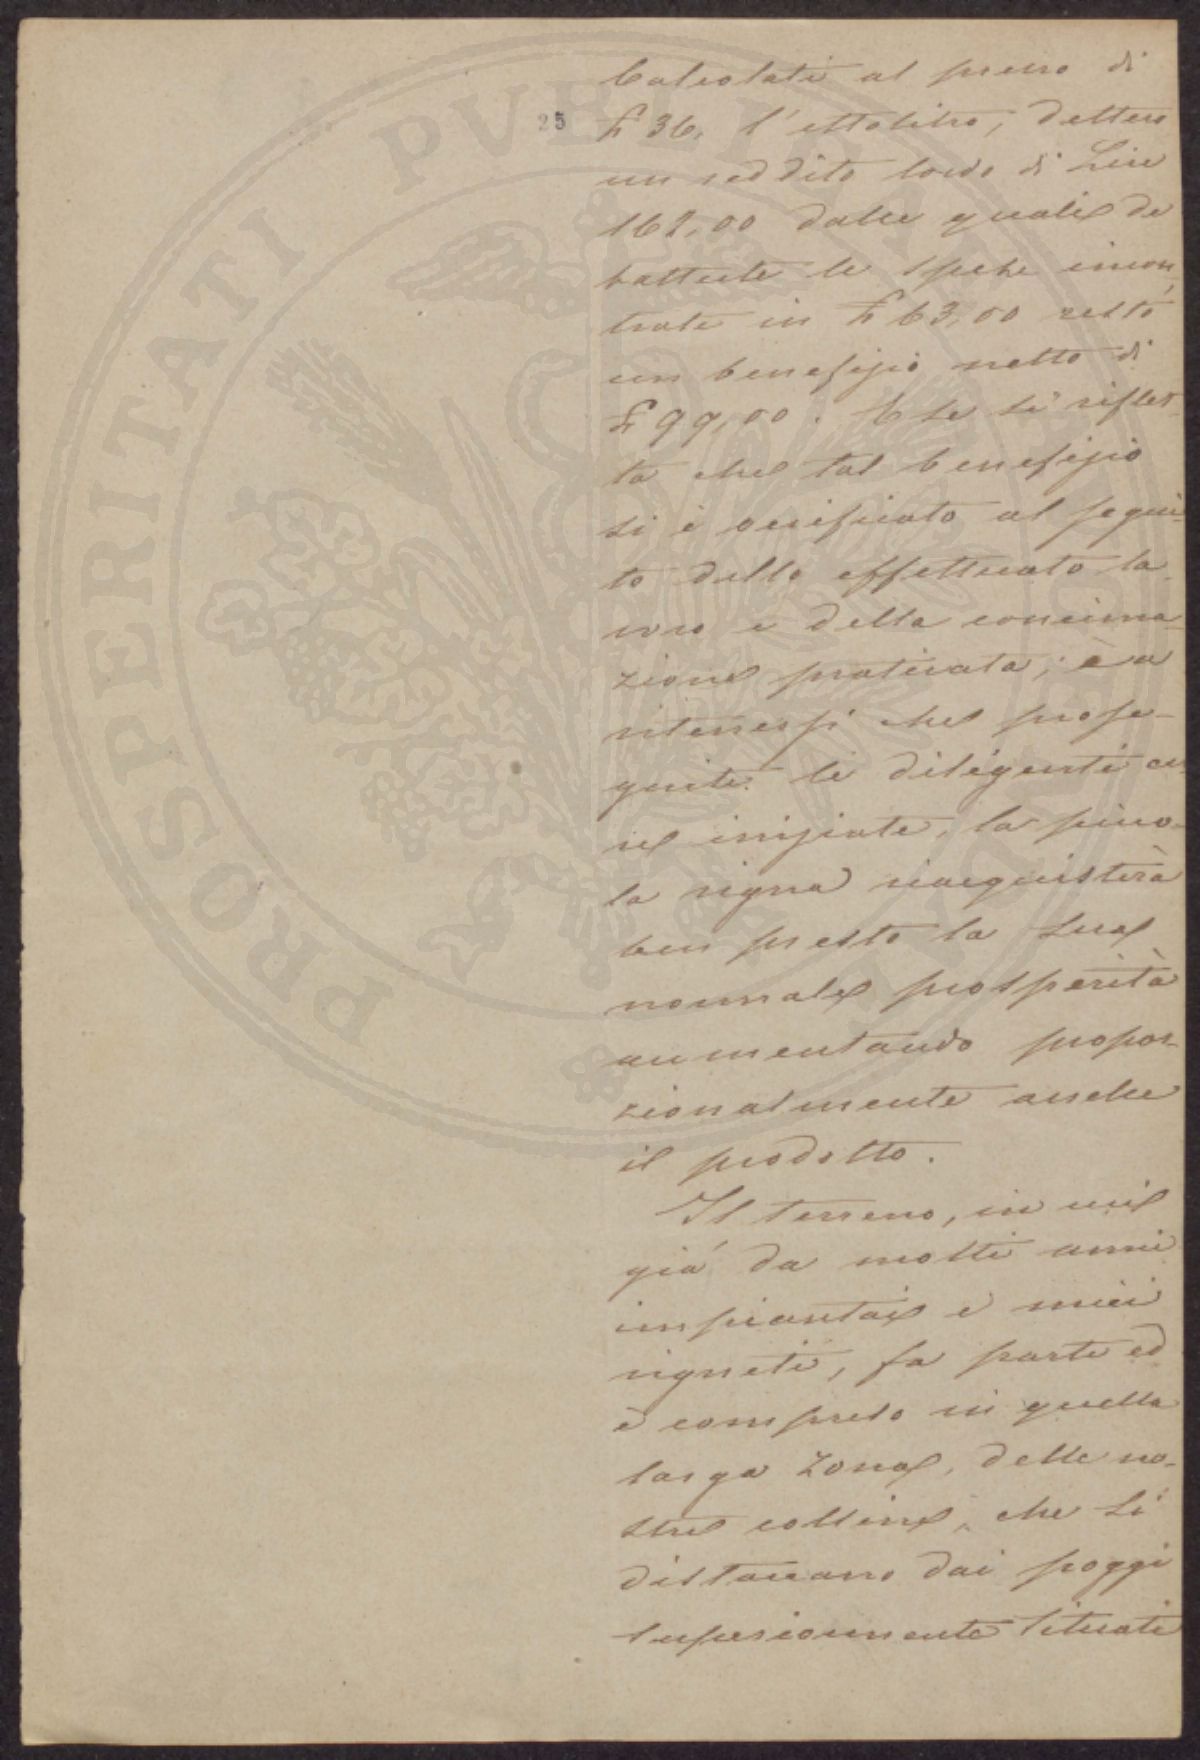 PROSPERITATI PVBLICAE AVGENDAE
25
Calcolati al prezzo di
£ 36, l'ettolitro, dettero
un reddito lordo di Lire
162,00 dalle quali de
battute le spese incon-
trate in £ 63,00 restò
un benefizio netto di
£ 99,00. E se si riflet-
ta che tal benefizio
si è verificato al segui-
to dello effettuato la-
voro e della concima-
zione praticata; è a
ritenersi che prose-
guite le diligenti cu-
re iniziate, la picco-
la vigna riacquisterà
ben presto la sua
normale prosperità
aumentando propor-
zionalmente anche
il prodotto.
Il terreno, in cui
già da molti anni
impiantai i miei
vigneti, fa parte ed
è compreso in quella
larga zona, delle no-
stre colline, che si
distaccano dai poggi
superiormente situati